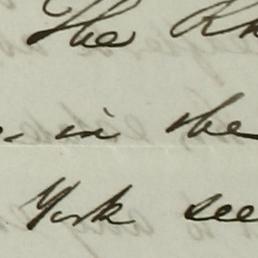 The
in the
York see